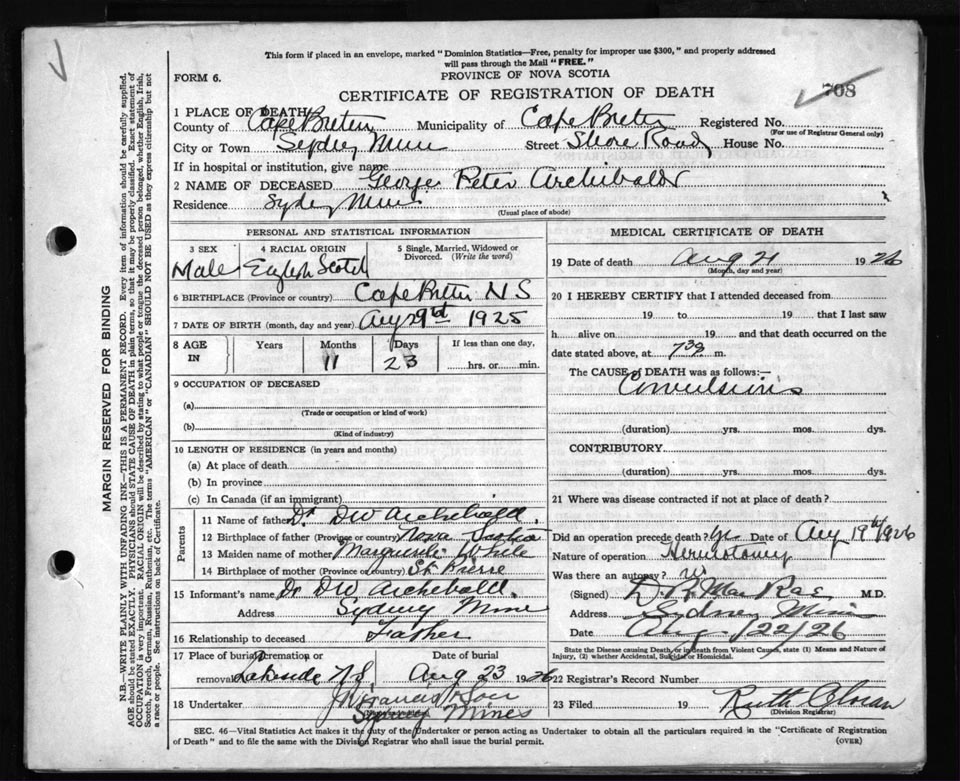 This form if placed in an envelope, marked "Dominion Statistics—Free, penalty for improper use $300," and properly addressed
will pass through the Mail "FREE."
FORM 6.
PROVINCE OF NOVA SCOTIA
CERTIFICATE OF REGISTRATION OF DEATH
708
1 PLACE OF DEATH
County of Cape Breton Municipality of Cape Breton Registered No.
(For use of Registrar General only)
City or Town Sydney Mines Street Shore Road House No.
If in hospital or institution, give name
2 NAME OF DECEASED George Peter Archibald
Residence Sydney Mines
(Usual place of abode)
PERSONAL AND STATISTICAL INFORMATION
3 SEX 4 RACIAL ORIGIN 5 Single, Married, Widowed or Divorced. (Write the word)
Male English Scotch
6 BIRTHPLACE (Province or country) Cape Breton N S
7 DATE OF BIRTH (month, day and year) 1925
8 AGE IN Years Months Days If less than one day,
11 23 hrs. or min.
9 OCCUPATION OF DECEASED
(a)
(Trade or occupation or kind of work)
(b)
(Kind of industry)
10 LENGTH OF RESIDENCE (in years and months)
(a) At place of death
(b) In province
(c) In Canada (if an immigrant)
Parents
11 Name of father Dr DW Archibald.
12 Birthplace of father (Province or country) Nova Scotia
13 Maiden name of mother Marguerite White
14 Birthplace of mother (Province or country) St Pierre
15 Informant's name Dr DW Archibald.
Address Sydney Mines
16 Relationship to deceased Father
17 Place of burial cremation or removal Lakeside NS. Date of burial Aug 23 1926
18 Undertaker J Francis
Sydney Mines
MEDICAL CERTIFICATE OF DEATH
19 Date of death Aug 21 1926
(Month, day and year)
20 I HEREBY CERTIFY that I attended deceased from
19 to 19 that I last saw
h alive on 19 and that death occurred on
date stated above, at 730 m.
The CAUSE of DEATH was as follows:—
Convulsions
(duration) yrs. mos. dys.
CONTRIBUTORY
(duration) yrs. mos. dys.
21 Where was disease contracted if not at place of death?
Did an operation precede death? yes Date of Aug 19th/1926
Nature of operation Herniotomy
Was there an autopsy? no
(Signed) MacRae M.D.
Address Sydney Mines
Date Aug. /22/26
State the Disease causing Death, or in death from Violent Causes, state (1) Means and Nature of
Injury, (2) whether Accidental, Suicidal or Homicidal.
22 Registrar's Record Number
23 Filed 19 Ruth
(Division Registrar)
SEC. 46—Vital Statistics Act makes it the duty of the Undertaker or person acting as Undertaker to obtain all the particulars required in the "Certificate of Registration
of Death" and to file the same with the Division Registrar who shall issue the burial permit.
(OVER)
MARGIN RESERVED FOR BINDING
N.B.—WRITE PLAINLY WITH UNFADING INK—THIS IS A PERMANENT RECORD. Every item of information should be carefully supplied.
AGE should be stated EXACTLY. PHYSICIANS should STATE CAUSE OF DEATH in plain terms, so that it may be properly classified. Exact statement of
OCCUPATION is very important. RACIAL ORIGIN will be described by stating to what people or tongue the deceased person belonged, whether English, Irish,
Scotch, French, German, Russian, Ruthenian, etc. The terms "AMERICAN" or "CANADIAN" SHOULD NOT BE USED as they express citizenship but not
a race or people. See instructions on back of Certificate.